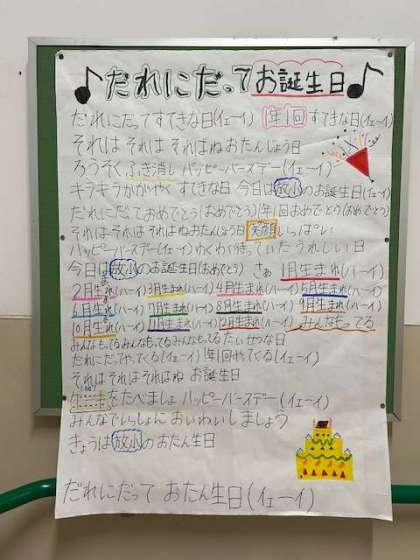 ♪だれにだってお誕生日♪
だれにだってすてきな日(イェーイ) 1年1回 すてきな日(イェーイ)
それは それは それはね おたんじょう日
ろうそく ふき消し ハッピーバースデー(イェーイ)
キラキラかがやく すてきな日 今日は放小のお誕生日(イェーイ)
だれにだっておめでとう(おめでとう)1年1回おめでとう(おめでとう)
それは それは それはね おたんじょう日 笑顔いっぱい
ハッピーバースデー(イェーイ)わくわく待っていた うれしい日
今日は放小のお誕生日(おめでとう) さぁ 1月生まれ(ハーイ)
2月生まれ(ハーイ)3月生まれ(ハーイ) 4月生まれ(ハーイ)5月生まれ(ハーイ)
6月生まれ(ハーイ)7月生まれ(ハーイ)8月生まれ(ハーイ) 9月生まれ(ハーイ)
10月生まれ(ハーイ)11月生まれ(ハーイ)12月生まれ(ハーイ)みんなもってる
みんなもってるみんなもってるみんなもってる たいせつな日
だれにだってやってくる(イェーイ)1年1回やってくる(イェーイ)
それは それは それはね お誕生日
ケーキをたべましょ ハッピーバースデー(イェーイ)
みんなでいっしょに おいわいしましょう
きょうは放小のおたん生日
だれにだって おたん生日(イェーイ)